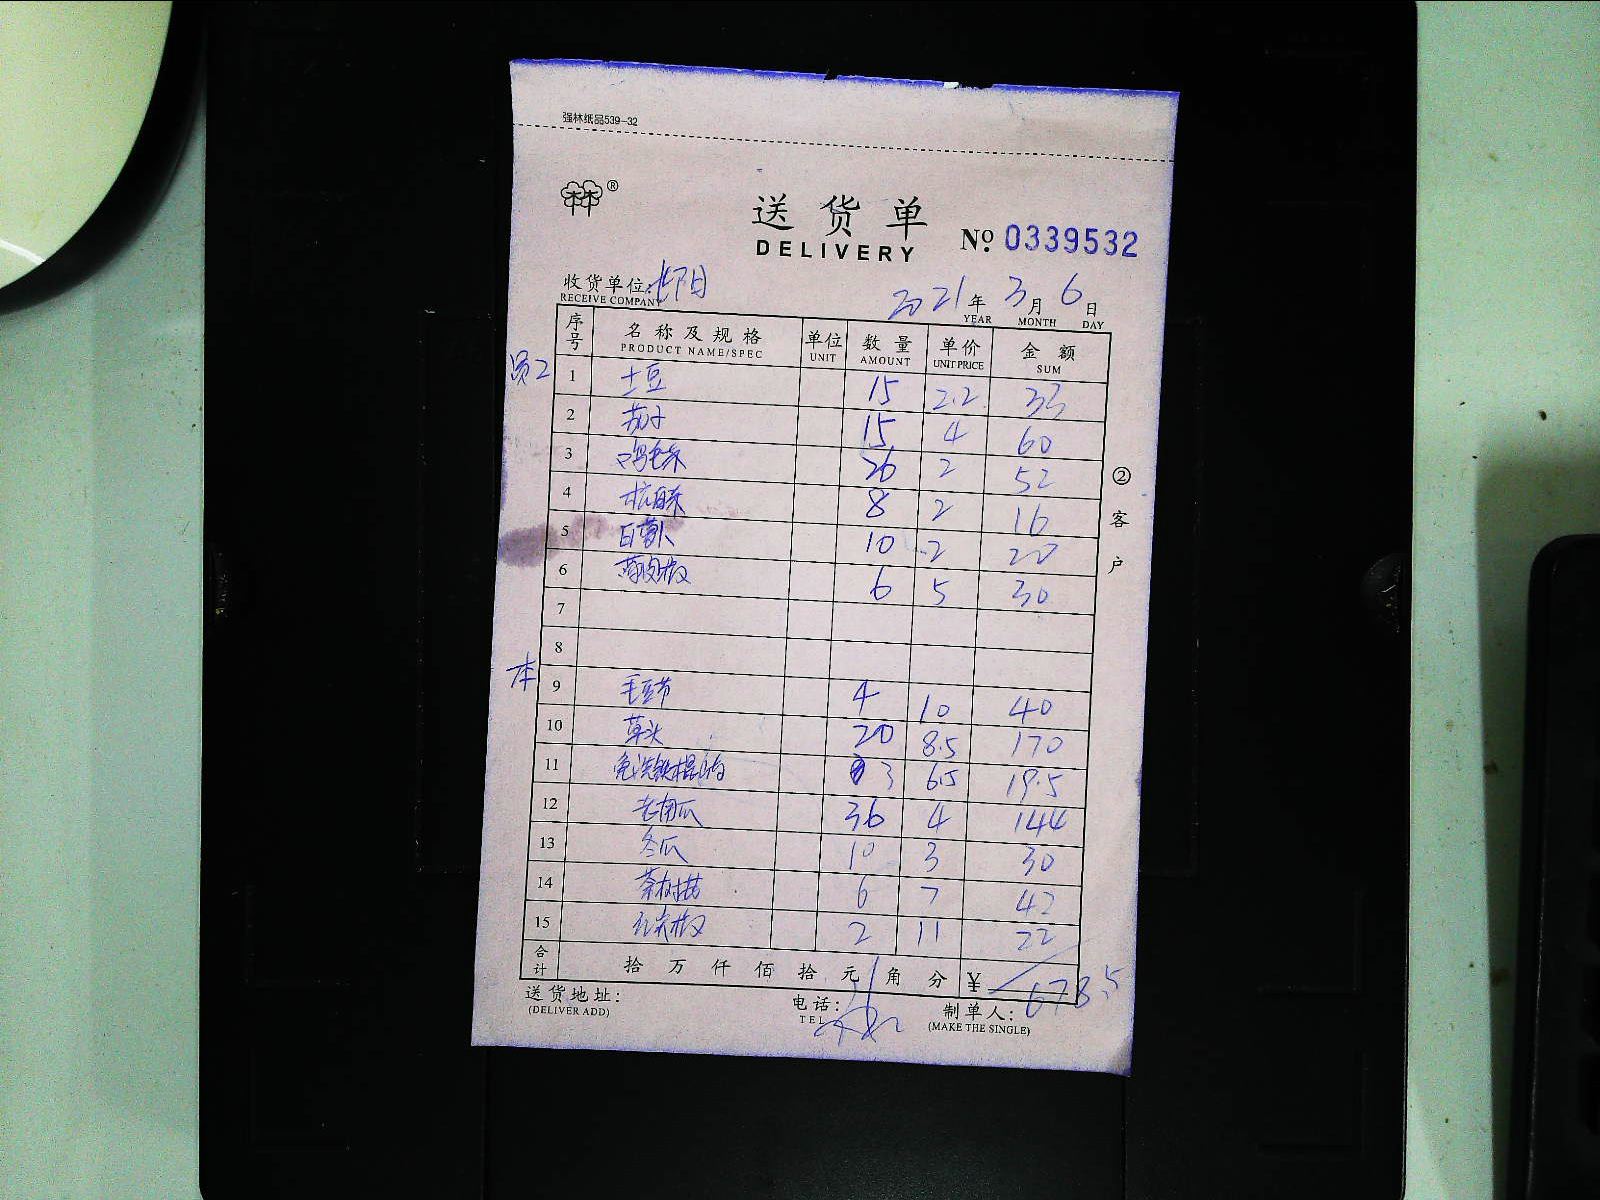 强林纸品539-32
®
送货单
DELIVERY
№ 0339532
收货单位:
RECEIVE COMPANY
2021年3月6日
YEAR MONTH DAY
序号 名称及规格 单位 数量 单价 金额
PRODUCT NAME/SPEC UNIT AMOUNT UNIT PRICE SUM
员2
1 土豆 15 2.2 33
2 茄子 15 4 60
3 鸡毛菜 26 2 52
4 杭白菜 8 2 16
5 白萝卜 10 2 20
6 薄皮椒 6 5 30
7
8
本
9 毛豆节 4 10 40
10 草头 20 8.5 170
11 3 6.5 19.5
12 老南瓜 36 4 144
13 冬瓜 10 3 30
14 茶树菇 6 7 42
15 红尖椒 2 11 22
合计 拾万仟佰拾元角分 ¥ 678.5
②客户
送货地址: 电话: 制单人:
(DELIVER ADD) TEL (MAKE THE SINGLE)